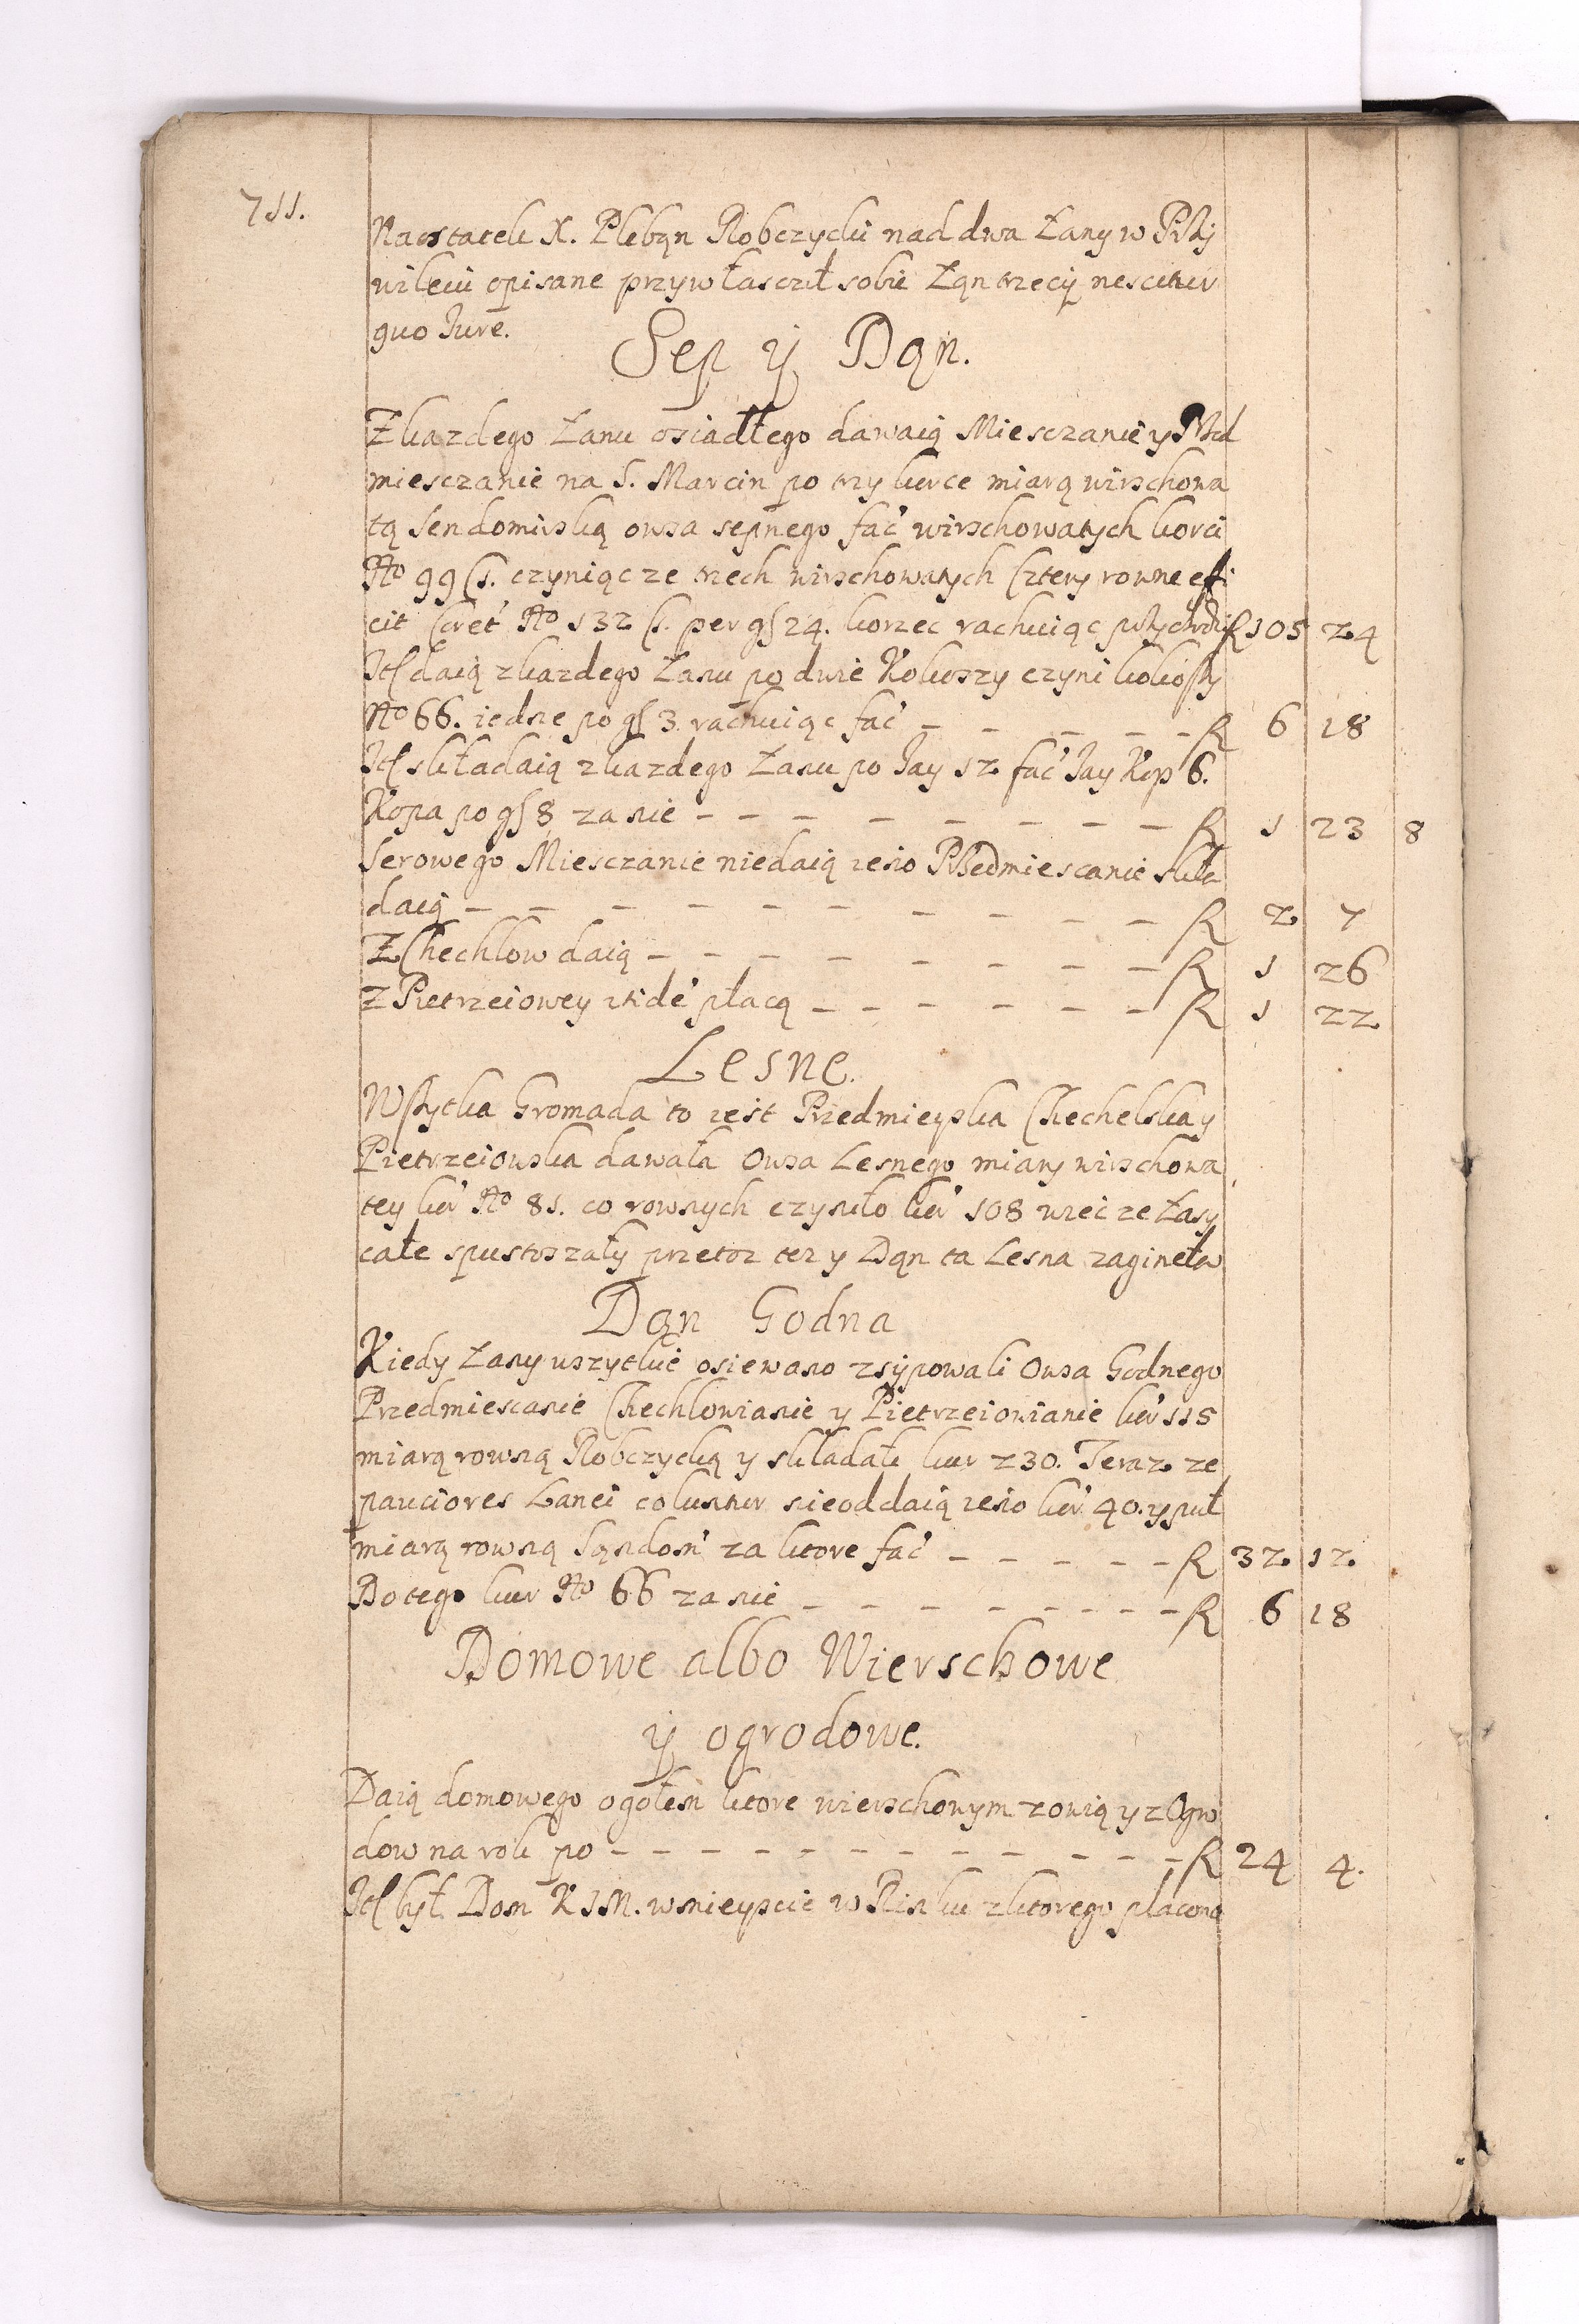 711.
Naostatek X. Plebąn Robczycki nad dwa Łany w Prẏ
wileiu opisane przywłasczył sobie Łąn trzeciÿ nescitur
quo Jure.
Sep ÿ Dąn.
Z kazdego Łanu osiadłego dawaią Miesczanie y Przed
miesczanie na S. Marcin po trzy korce miarą wirschowa
tą Sendomirską owsa sepnego fac̃ wirschowatych korci
No 99 Cs. czyniąc ze trzech wirschowatych Cztery rowne effi
cit Coret̃ No 132 Cs. per gs 24. korzec rachuiąc przychodzi R 105 24
Itẽ daią z kazdego Łanu po dwie Kokoszy czyni kokoszy
No 66. iedne po gs 3 rachuiąc fac̃ – – – – – R 6 18
Itẽ składaią z kazdego Łanu po Jay 12 fac̃ Jay Kop 6.
Kopa po gs 8 za nie – – – – – – – – R 1 23 8
Serowego Miesczanie niedaią ieno Przedmiescanie skła
daią – – – – – – – – – R 2 7
Z Chechlow daią – – – – – – – – R 1 26
Z Pietrzeiowey itidẽ płacą – – – – – – R 1 22
Lesne.
Wszytka Gromada to iest Przedmieyska Chechelska y
Pietrzeiowska dawała Owsa Lesnego miary wirschowa
tey kor̃ No 81. co rownych czyniło kor̃ 108 wiec ze Łasy
całe spustoszały przetoz tez y Dąn ta Lesna zagineła
Dan Godna
Kiedy Łany wszytkie osiewano zsÿpowali Owsa Godnego
Przedmiescanie Chechlowianie y Pietrzeiowianie kor̃ 115
miarą rowną Robczycką y składali kur 230. Teraz ze
pauciores Lanei coluntur nieoddaią ieno kor̃ 40. y puł
miarą rowną Sąndom̃ za ktore fac̃ – – – – – R 32 12
Do tego kur No 66 za nie – – – – – – – – R 6 18
Domowe albo Wierschowe
ÿ ogrodowe.
Daią domowego ogołem ktore wierschowym zowią y z Ogro
dow na rok po – – – – – – – – – – – R 24 4.
Itẽ był Dom K J M. w mieyscie w Rinku z ktorego płacono